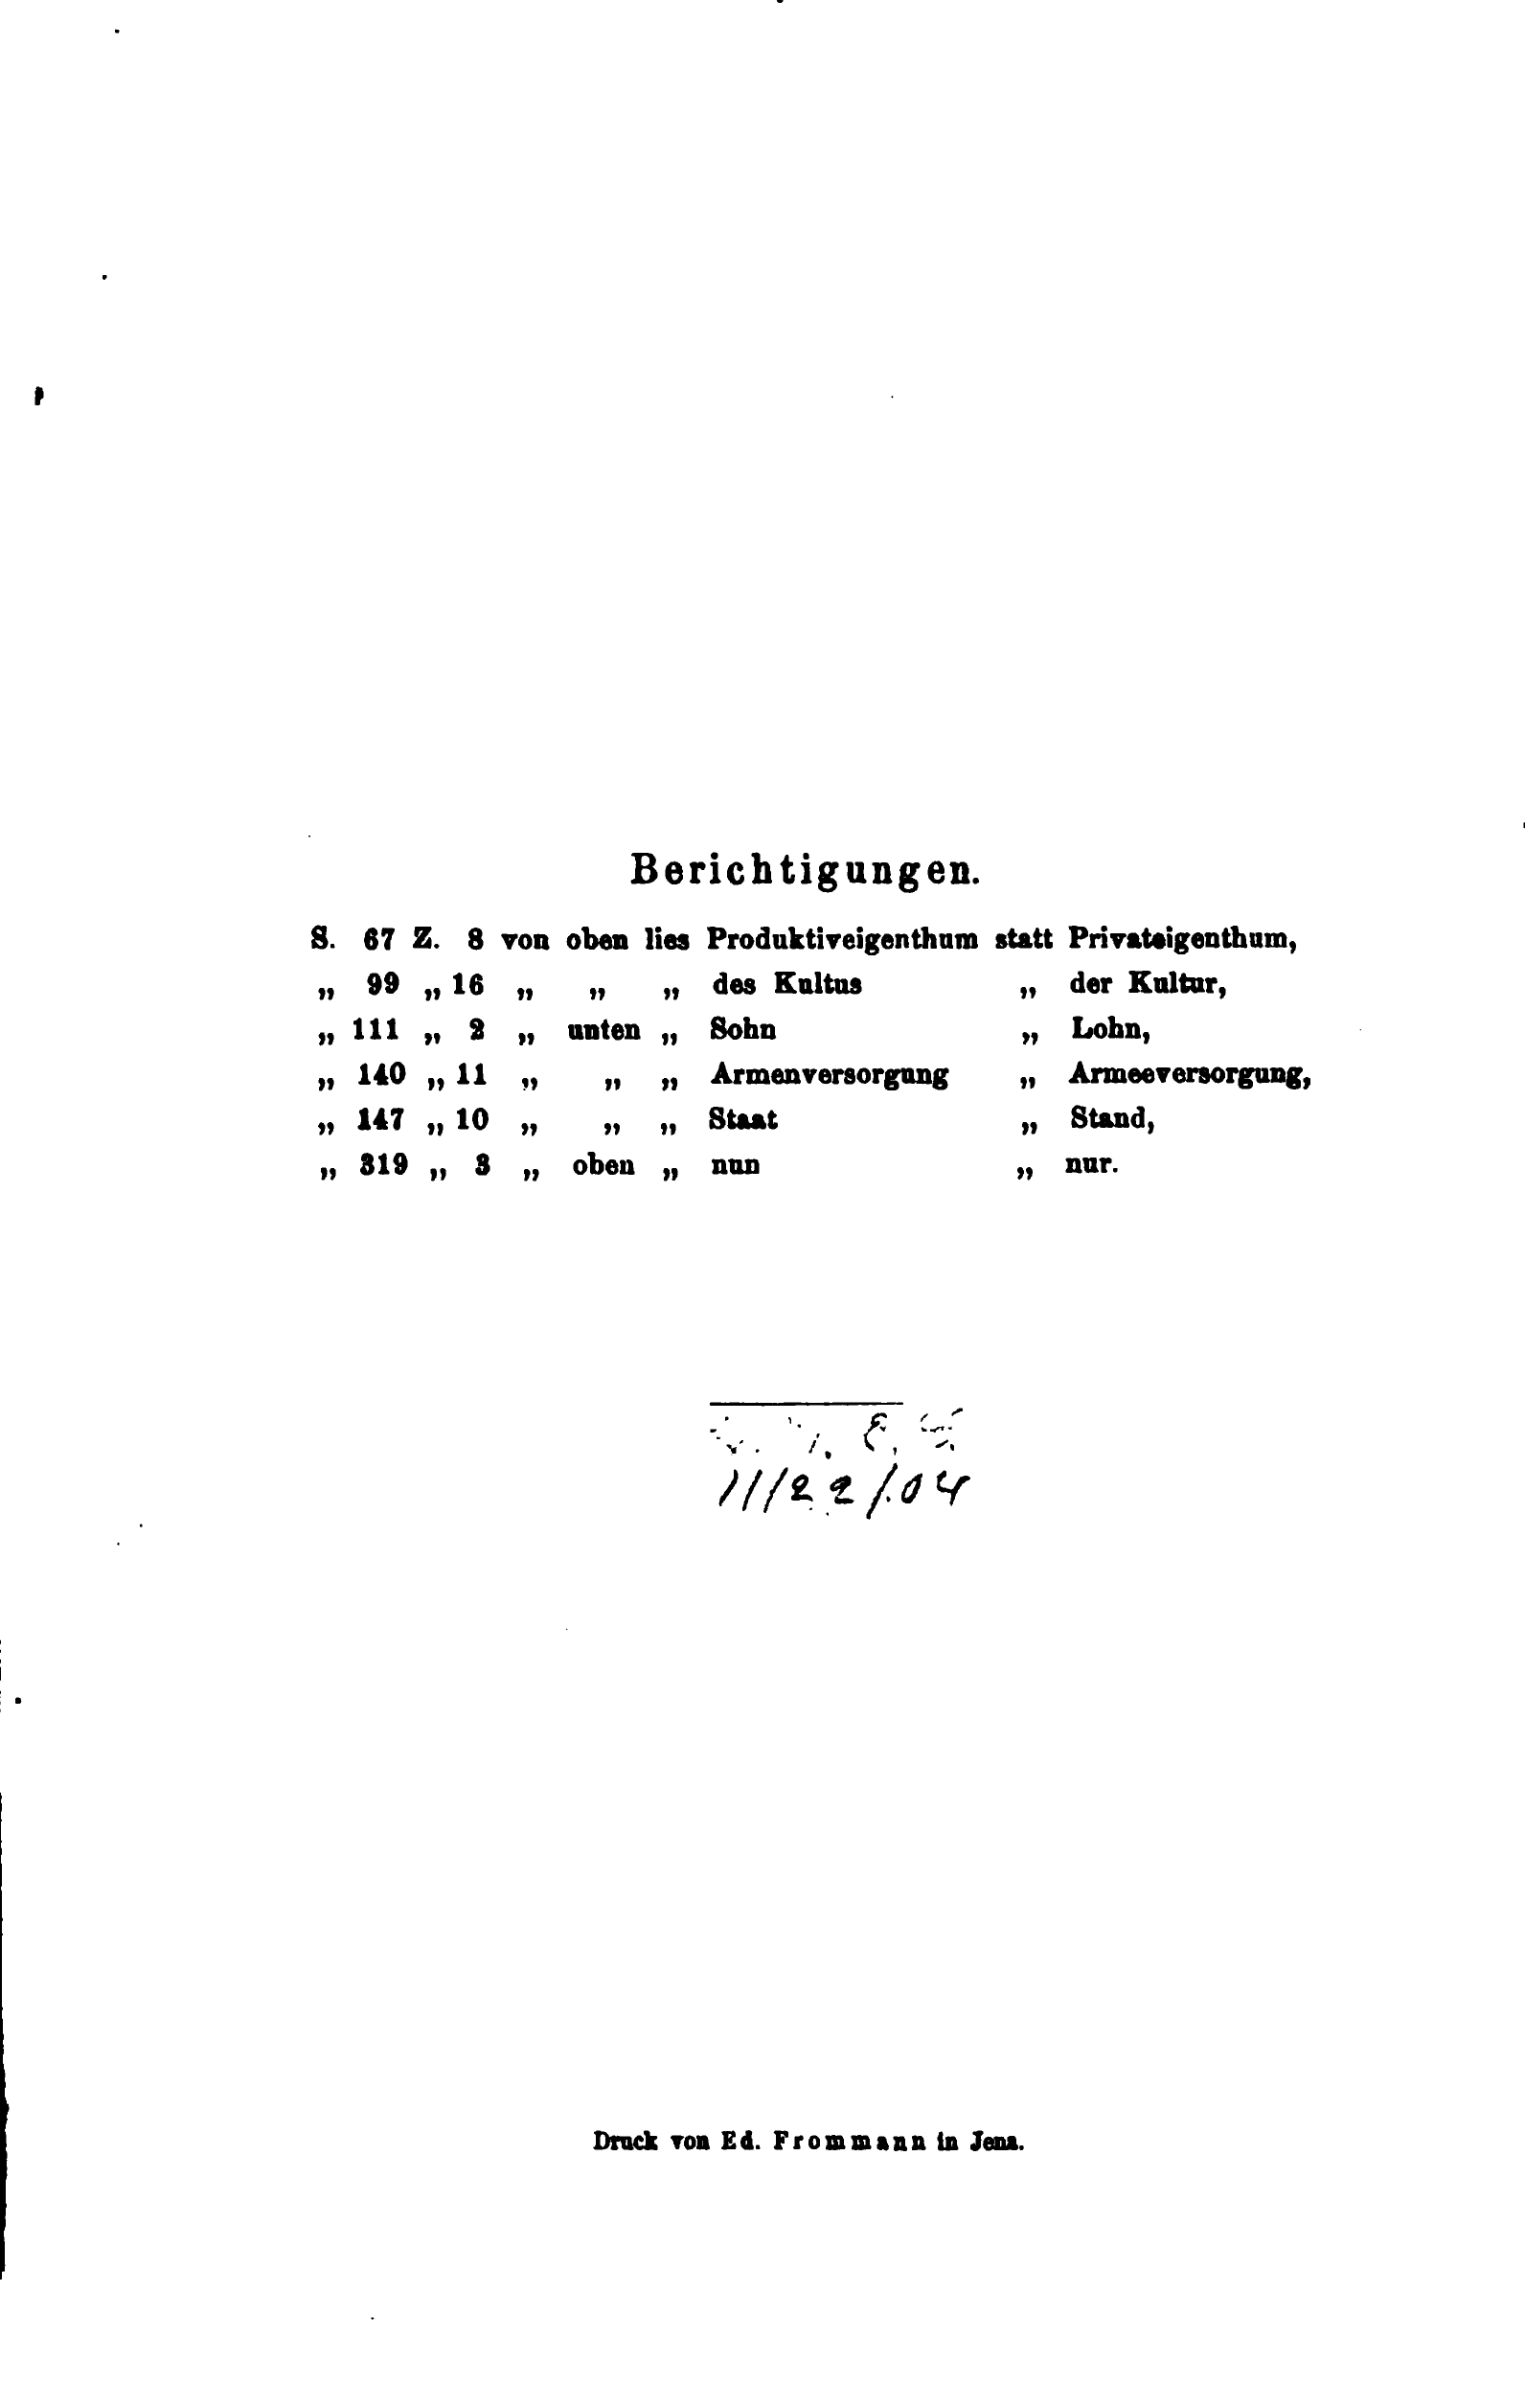 Berichtigungen.
S. 67 Z. 8 von oben lies Produktiveigenthum statt Privateigenthum,
„ 99 „ 16 „ „ „ des Kultus „ der Kultur,
„ 111 „ 2 „ unten „ Sohn „ Lohn,
„ 140 „ 11 „ „ „ Armenversorgung „ Armeeversorgung,
„ 147 „ 10 „ „ „ Staat „ Stand,
„ 319 „ 3 „ oben „ nun „ nur.
11/22/04
Druck von Ed. Frommann in Jena.